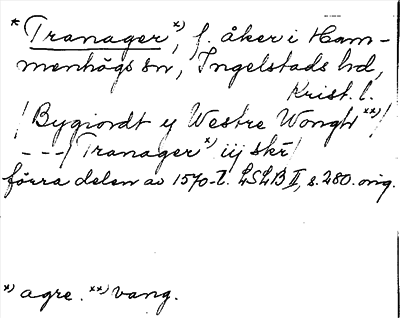 * Tranager *), f. åker i Ham-
menhögs sn, Ingelstads hd,
Krist. l.
/Bygiordt y Westre Wongh **)/
---/Tranager *) iij skr/
förra delen av 1570-t. LSLB II, s. 280. orig.
*) agre. **) vang.